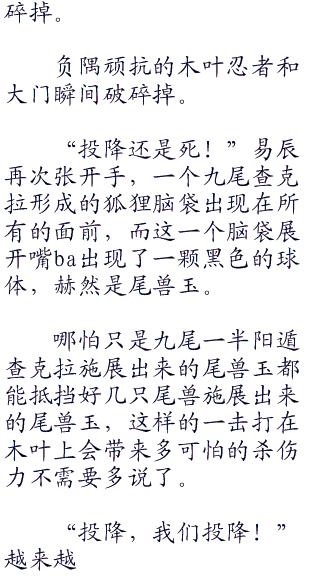 碎掉。
负隅顽抗的木叶忍者和
大门瞬间破碎掉。
“投降还是死！”易辰
再次张开手，一个九尾查克
拉形成的狐狸脑袋出现在所
有的面前，而这一个脑袋展
开嘴ba出现了一颗黑色的球
体，赫然是尾兽玉。
哪怕只是九尾一半阳遁
查克拉施展出来的尾兽玉都
能抵挡好几只尾兽施展出来
的尾兽玉，这样的一击打在
木叶上会带来多可怕的杀伤
力不需要多说了。
“投降，我们投降！”
越来越